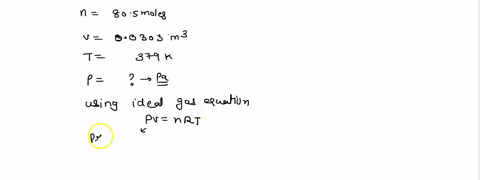 n = 80.5 moles
V = 0.0303 m³
T = 379 K
P = ? → Pa
using ideal gas equation
PV = nRT
P